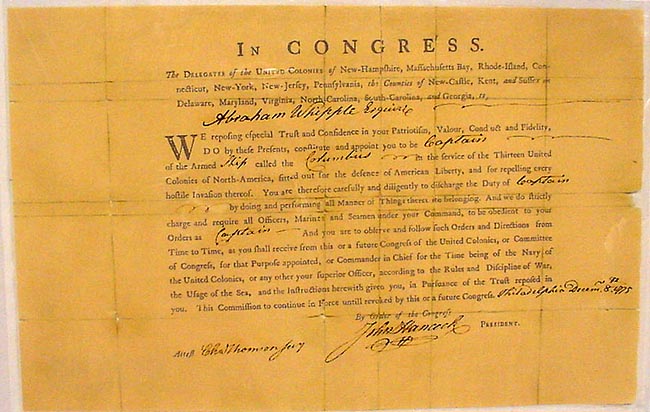 IN CONGRESS.
The DELEGATES of the UNITED COLONIES of New-Hampshire, Massachusetts Bay, Rhode-Island, Con-
necticut, New-York, New-Jersey, Pennsylvania, the Counties of New-Castle, Kent, and Sussex on
Delaware, Maryland, Virginia, North-Carolina, South-Carolina, and Georgia, to
Abraham Whipple Esquire
WE reposing especial Trust and Confidence in your Patriotism, Valour, Conduct and Fidelity,
DO by these Presents, constitute and appoint you to be Captain
of the Armed Ship called the Columbus in the service of the Thirteen United
Colonies of North-America, fitted out for the defence of American Liberty, and for repelling every
hostile Invasion thereof. You are therefore carefully and diligently to discharge the Duty of Captain
by doing and performing all Manner of Things thereto belonging. And we do strictly
charge and require all Officers, Marines and Seamen under your Command, to be obedient to your
Orders as Captain And you are to observe and follow such Orders and Directions from
Time to Time, as you shall receive from this or a future Congress of the United Colonies, or Committee
of Congress, for that Purpose appointed, or Commander in Chief for the Time being of the Navy of
the United Colonies, or any other your superior Officer, according to the Rules and Discipline of War,
the Usage of the Sea, and the Instructions herewith given you, in Pursuance of the Trust reposed in
you. This Commission to continue in Force until revoked by this or a future Congress. Philadelphia 1775
By Order of the Congress
John Hancock PRESIDENT.
Attest Cha Thomson Secy